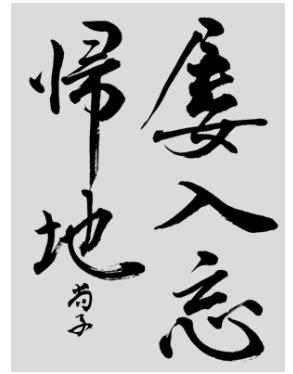 屡入忘
帰地
尚子